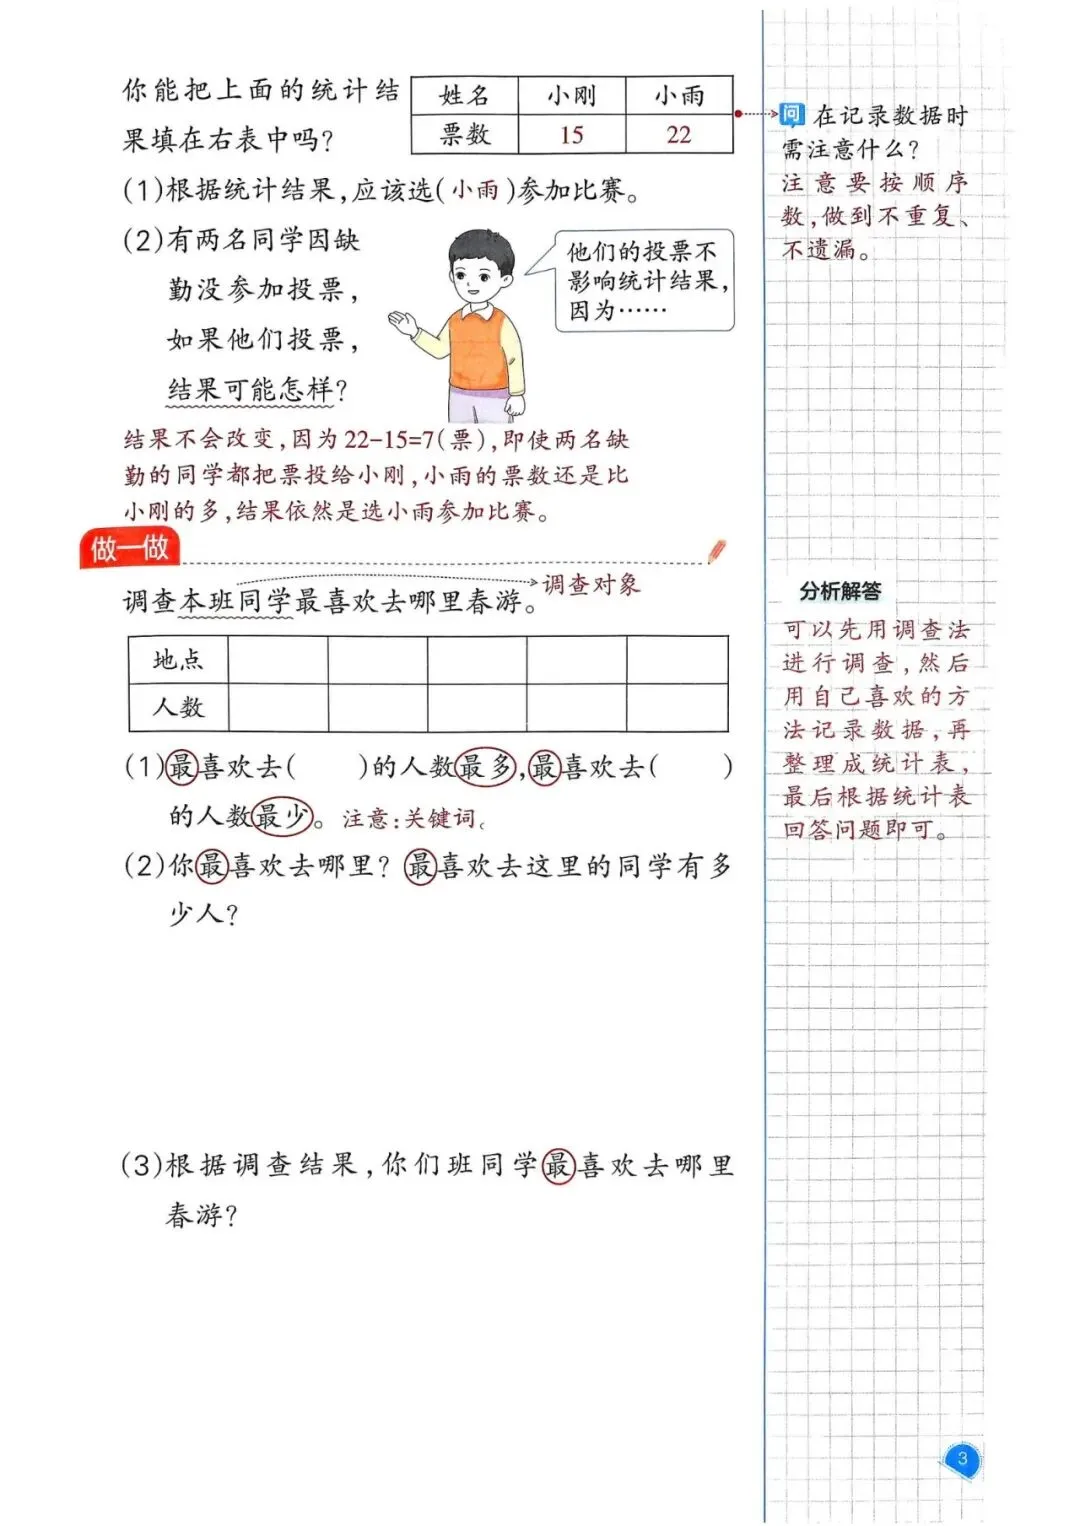 你能把上面的统计结
果填在右表中吗?
姓名 小刚 小雨
票数 15 22
(1)根据统计结果,应该选(小雨)参加比赛。
(2)有两名同学因缺
勤没参加投票,
如果他们投票,
结果可能怎样?
他们的投票不
影响统计结果,
因为……
结果不会改变,因为22-15=7(票),即使两名缺
勤的同学都把票投给小刚,小雨的票数还是比
小刚的多,结果依然是选小雨参加比赛。
问 在记录数据时
需注意什么?
注意要按顺序
数,做到不重复、
不遗漏。
做一做
调查本班同学最喜欢去哪里春游。
调查对象
地点
人数
(1)最喜欢去( )的人数最多,最喜欢去( )
的人数最少。注意:关键词。
(2)你最喜欢去哪里?最喜欢去这里的同学有多
少人?
(3)根据调查结果,你们班同学最喜欢去哪里
春游?
分析解答
可以先用调查法
进行调查,然后
用自己喜欢的方
法记录数据,再
整理成统计表,
最后根据统计表
回答问题即可。
3